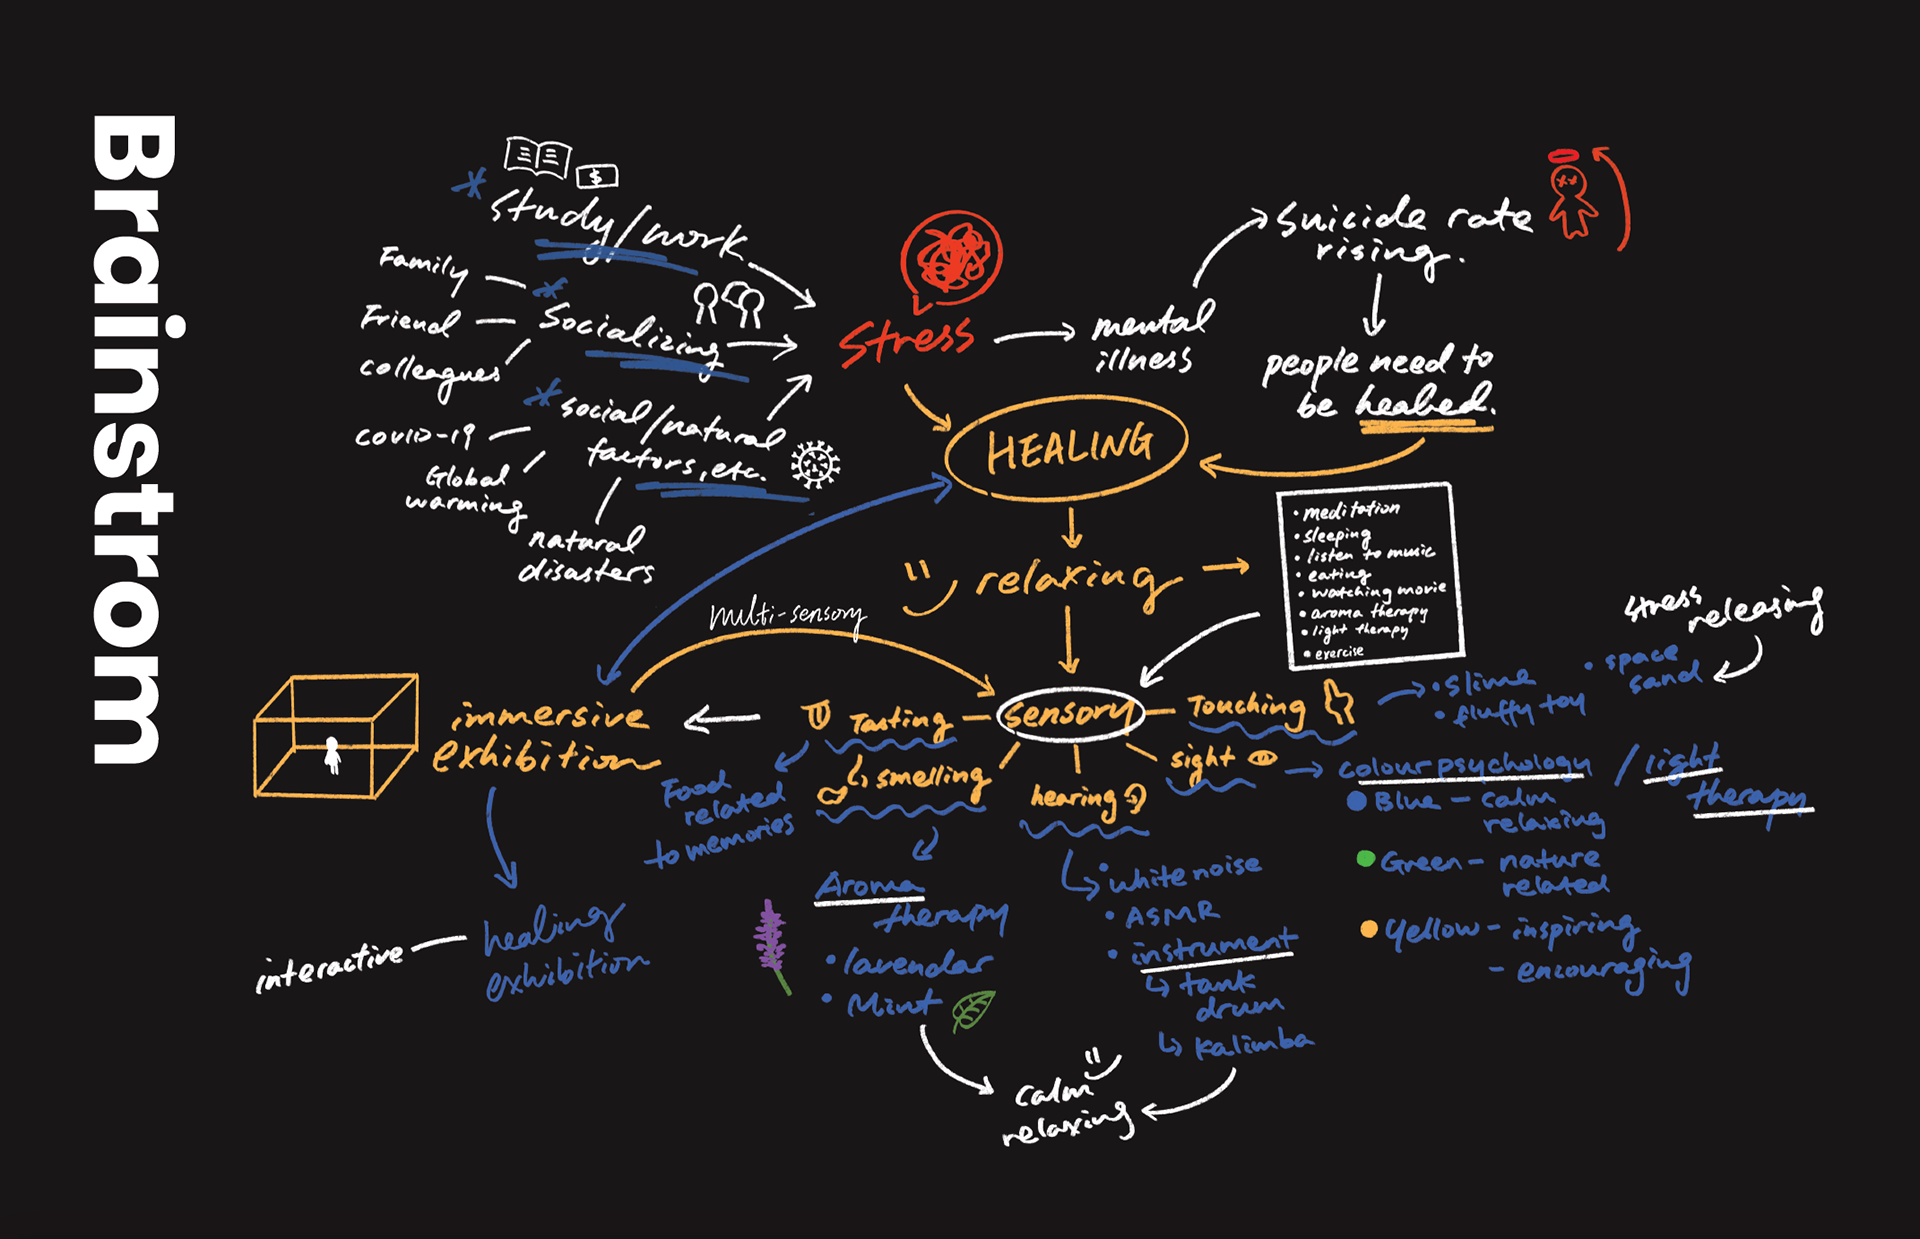 Brainstrom
study/work
$
Family
Friend
colleagues
Socializing
social/natural
factors, etc.
covid-19
Global
warming
natural
disasters
stress
mental
illness
suicide rate
rising.
people need to
be heabed.
HEALING
relaxing
• meditation
• sleeping
• listen to music
• eating
• watching movie
• aroma therapy
• light therapy
• exercise
multi-sensory
immersive
exhibition
healing
exhibition
interactive
sensory
Tasting
Food
related
to memories
smelling
Aroma
therapy
• lavendar
• Mint
hearing
• white noise
• ASMR
• instrument
tank
drum
kalimba
calm
relaxing
Touching
• slime
• fluffy toy
• space
sand
stress
releasing
sight
colour psychology / light
therapy
Blue - calm
relaxing
Green - nature
related
Yellow - inspiring
- encouraging